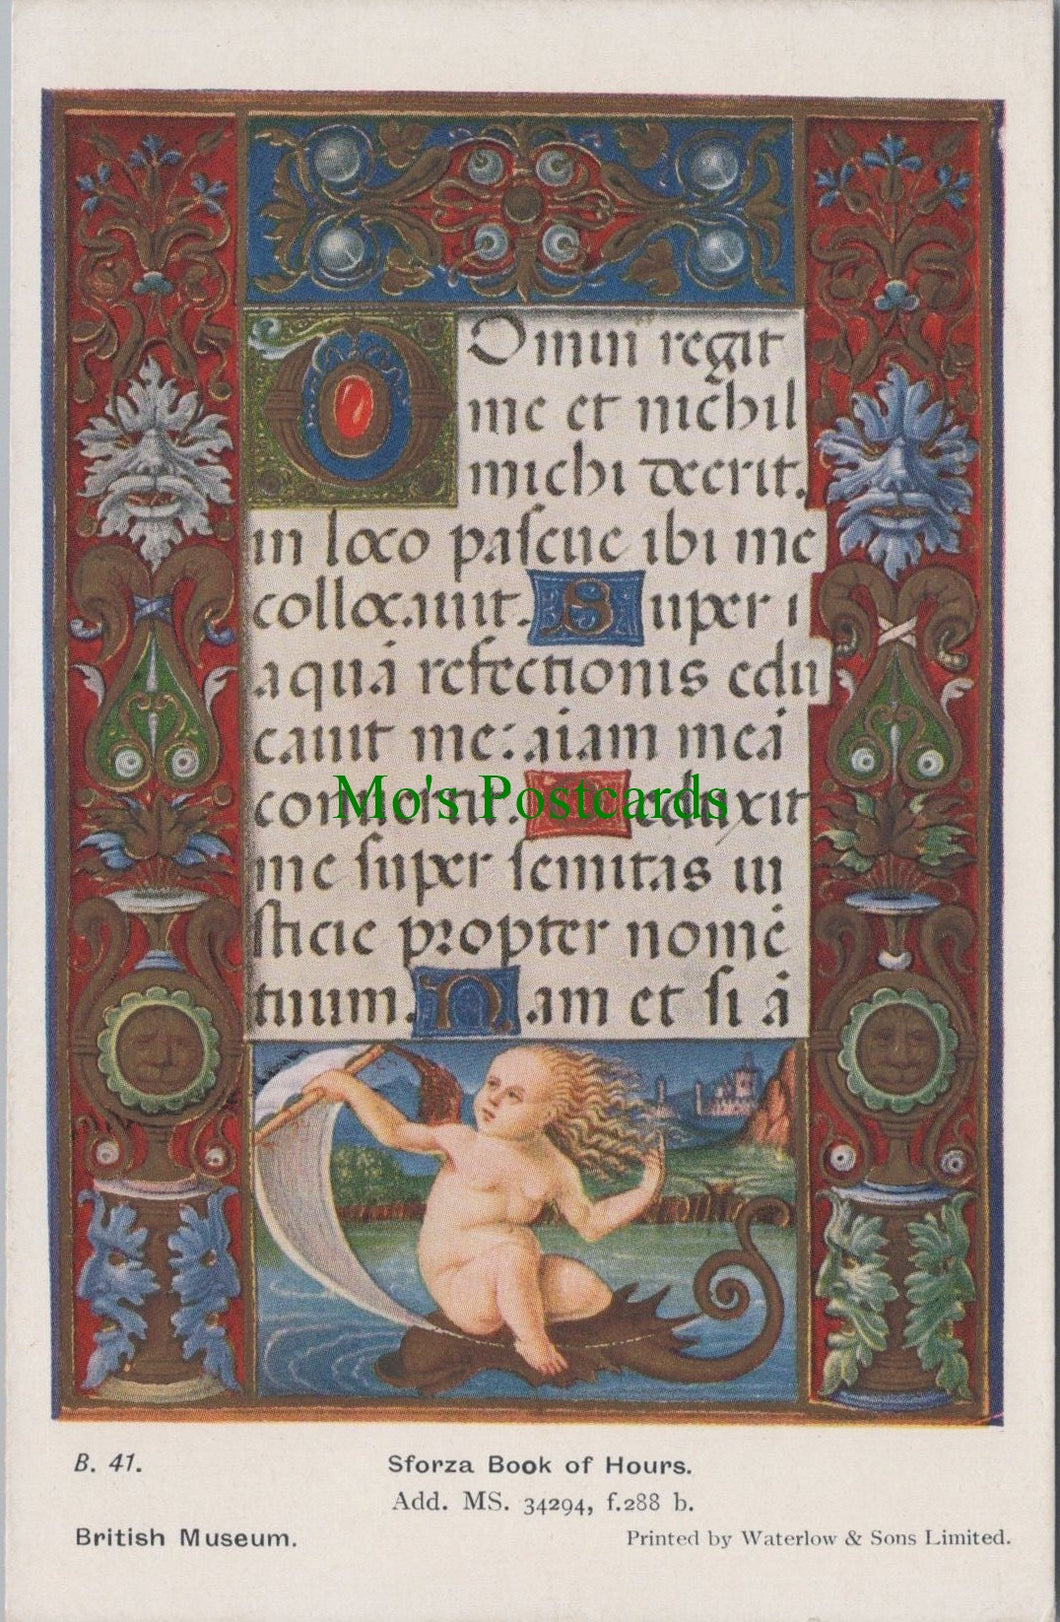 DOmin regit
me et nichil
michi deerit.
in loco pascue ibi me
collocauit. Super
aquā refectionis edu
cauit me: aīam meā
conuertit. Deduxit
me super semitas iu
sticie propter nomē
tuum. Nam et si ā
Mo's Postcards
B. 41.
Sforza Book of Hours.
Add. MS. 34294, f.288 b.
British Museum.
Printed by Waterlow & Sons Limited.